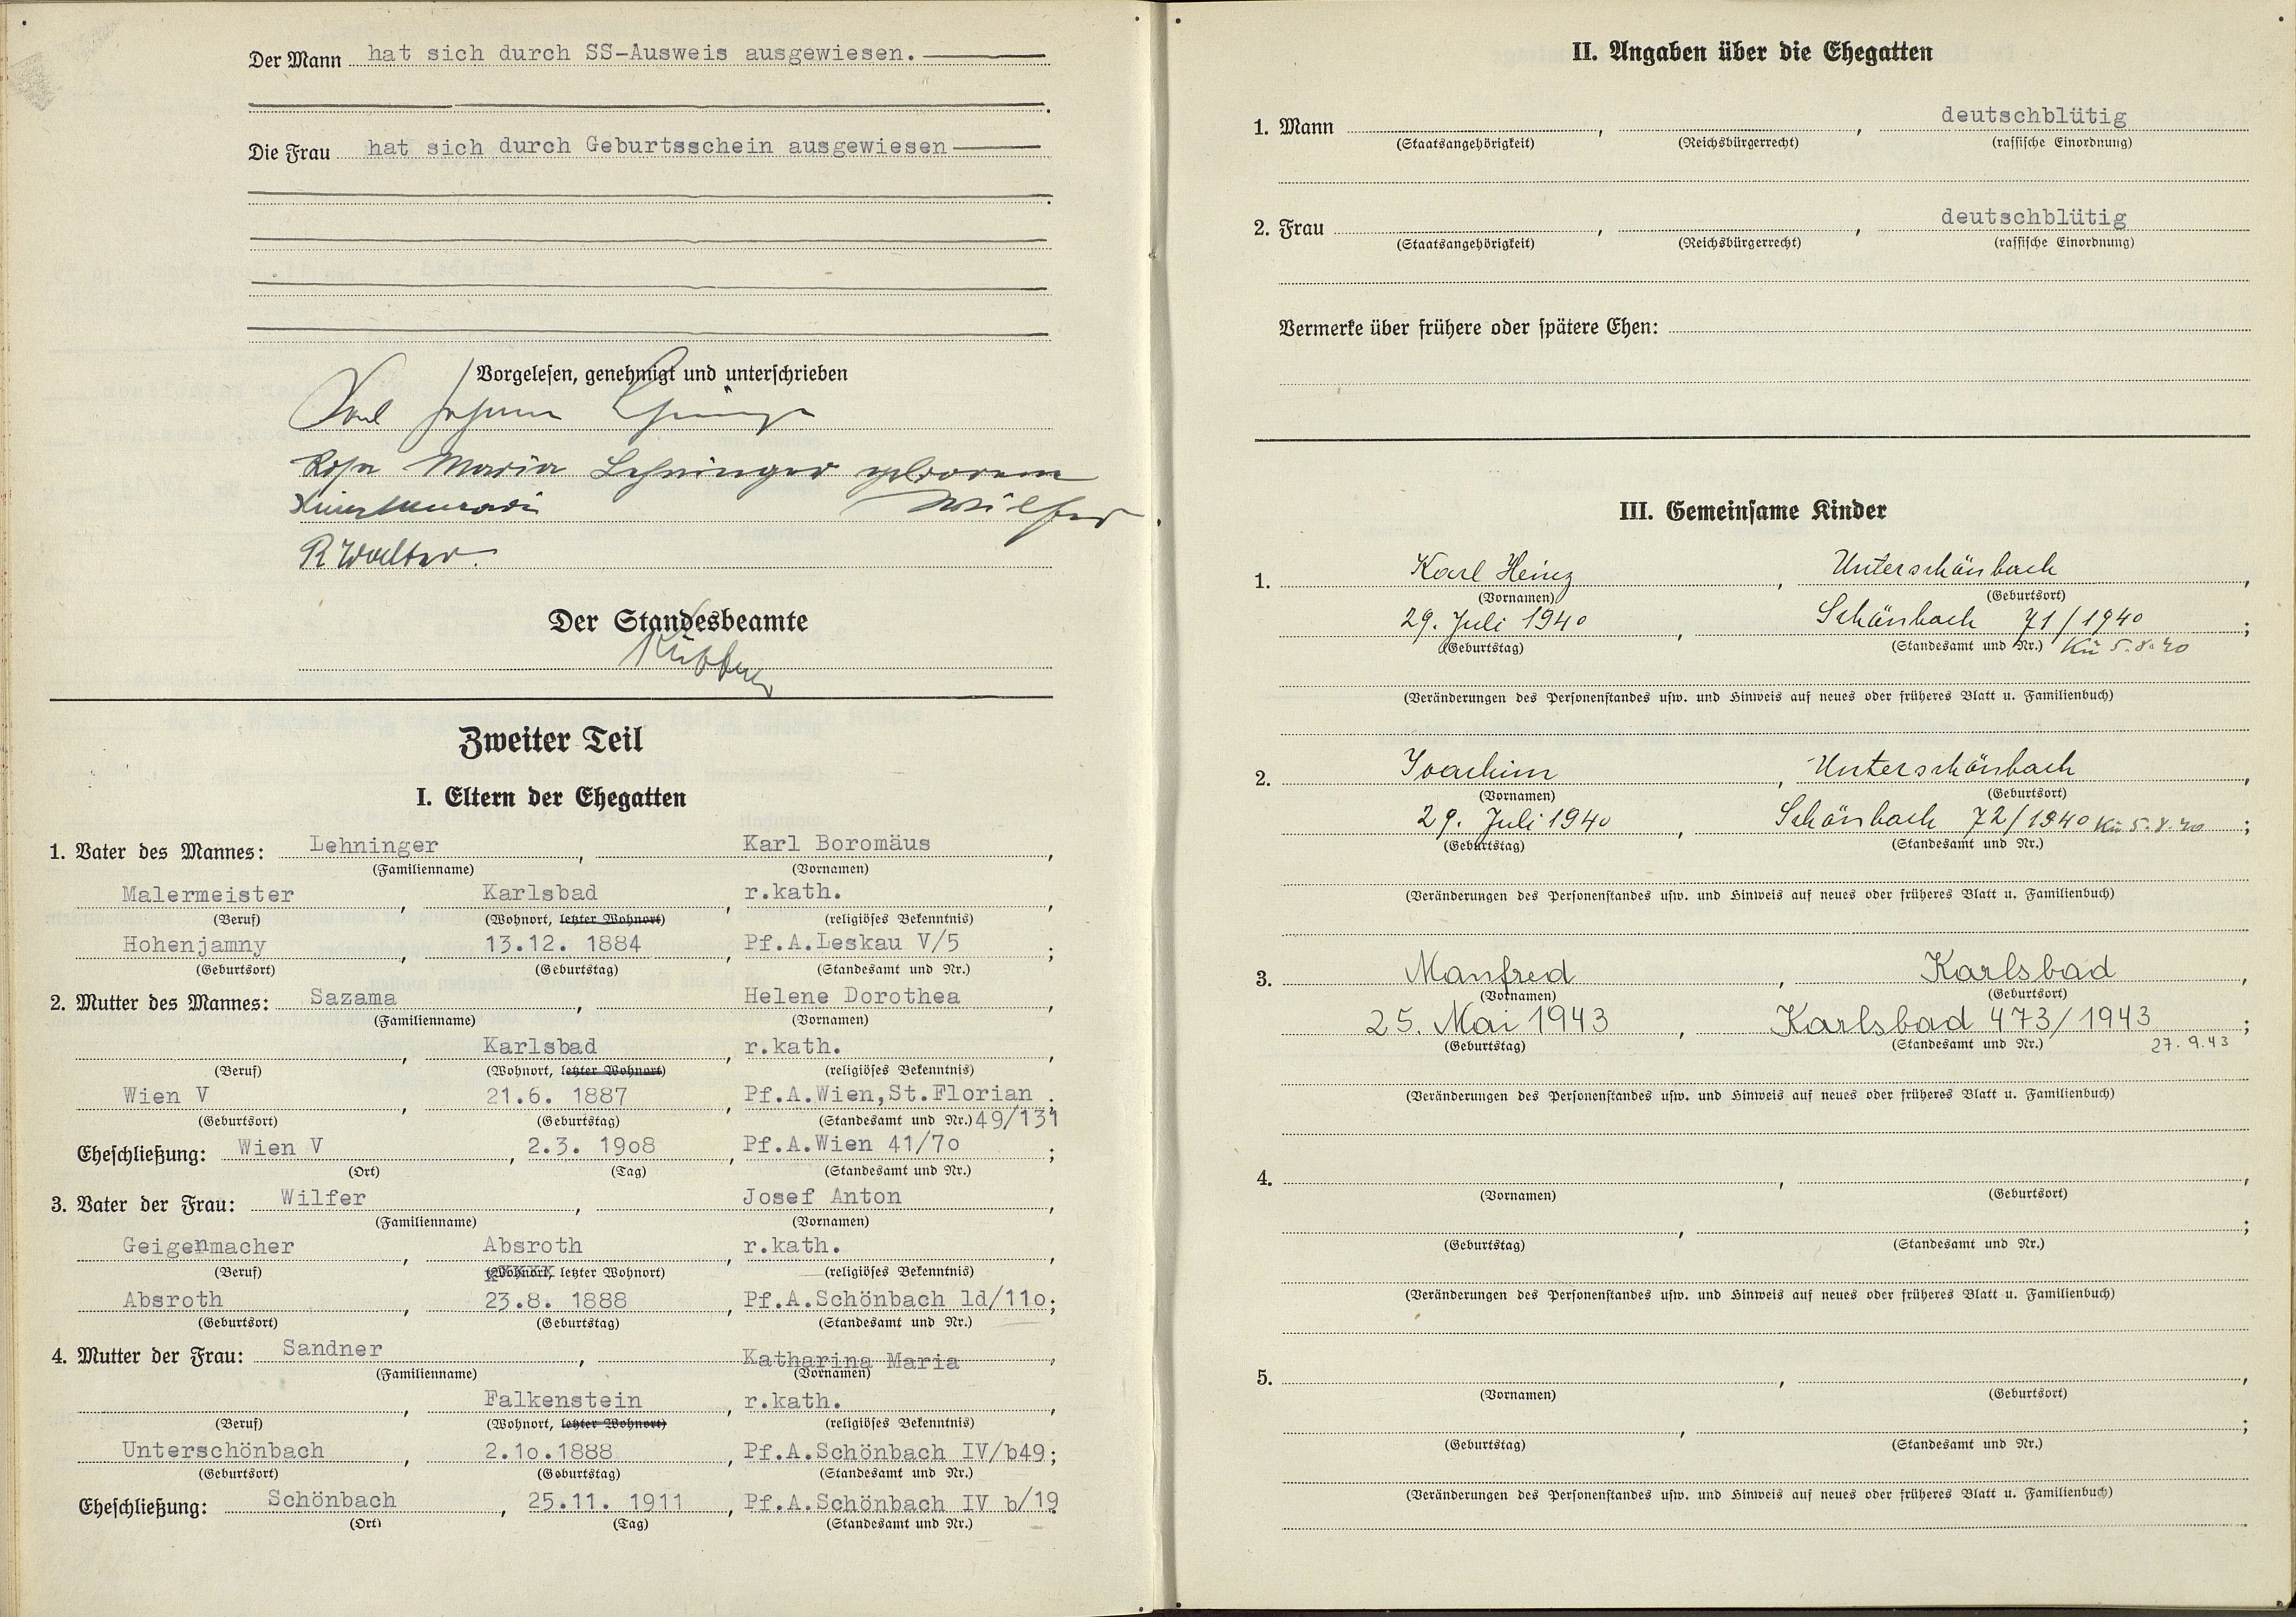 Der Mann hat sich durch SS-Ausweis ausgewiesen.
Die Frau hat sich durch Geburtsschein ausgewiesen
Vorgelesen, genehmigt und unterschrieben
Karl Johann
Rosa Maria Lehninger geborene
Wilfer
R Walter.
Der Standesbeamte
Zweiter Teil
I. Eltern der Ehegatten
1. Vater des Mannes: Lehninger, Karl Boromäus,
(Familienname) (Vornamen)
Malermeister, Karlsbad, r.kath.,
(Beruf) (Wohnort, letzter Wohnort) (religiöses Bekenntnis)
Hohenjamny, 13.12. 1884, Pf.A.Leskau V/5;
(Geburtsort) (Geburtstag) (Standesamt und Nr.)
2. Mutter des Mannes: Sazama, Helene Dorothea,
(Familienname) (Vornamen)
, Karlsbad, r.kath.,
(Beruf) (Wohnort, letzter Wohnort) (religiöses Bekenntnis)
Wien V, 21.6. 1887, Pf.A.Wien,St.Florian;
(Geburtsort) (Geburtstag) (Standesamt und Nr.) 49/131
Eheschließung: Wien V, 2.3. 19o8, Pf.A.Wien 41/7o;
(Ort) (Tag) (Standesamt und Nr.)
3. Vater der Frau: Wilfer, Josef Anton,
(Familienname) (Vornamen)
Geigenmacher, Absroth, r.kath.,
(Beruf) (Wohnort, letzter Wohnort) (religiöses Bekenntnis)
Absroth, 23.8. 1888, Pf.A.Schönbach ld/11o;
(Geburtsort) (Geburtstag) (Standesamt und Nr.)
4. Mutter der Frau: Sandner, Katharina Maria,
(Familienname) (Vornamen)
, Falkenstein, r.kath.,
(Beruf) (Wohnort, letzter Wohnort) (religiöses Bekenntnis)
Unterschönbach, 2.1o.1888, Pf.A.Schönbach IV/b49;
(Geburtsort) (Geburtstag) (Standesamt und Nr.)
Eheschließung: Schönbach, 25.11. 1911, Pf.A.Schönbach IV b/19
(Ort) (Tag) (Standesamt und Nr.)
II. Angaben über die Ehegatten
1. Mann , , deutschblütig
(Staatsangehörigkeit) (Reichsbürgerrecht) (rassische Einordnung)
2. Frau , , deutschblütig
(Staatsangehörigkeit) (Reichsbürgerrecht) (rassische Einordnung)
Vermerke über frühere oder spätere Ehen:
III. Gemeinsame Kinder
1. Karl Heinz, Unterschönbach,
(Vornamen) (Geburtsort)
29. Juli 1940, Schönbach 71/1940;
(Geburtstag) (Standesamt und Nr.) Kü 5.8.40
(Veränderungen des Personenstandes usw. und Hinweis auf neues oder früheres Blatt u. Familienbuch)
2. Joachim, Unterschönbach,
(Vornamen) (Geburtsort)
29. Juli 1940, Schönbach 72/1940 Kü 5.8.40;
(Geburtstag) (Standesamt und Nr.)
(Veränderungen des Personenstandes usw. und Hinweis auf neues oder früheres Blatt u. Familienbuch)
3. Manfred, Karlsbad,
(Vornamen) (Geburtsort)
25. Mai 1943, Karlsbad 473/1943;
(Geburtstag) (Standesamt und Nr.) 27.9.43
(Veränderungen des Personenstandes usw. und Hinweis auf neues oder früheres Blatt u. Familienbuch)
4. , ,
(Vornamen) (Geburtsort)
, ;
(Geburtstag) (Standesamt und Nr.)
(Veränderungen des Personenstandes usw. und Hinweis auf neues oder früheres Blatt u. Familienbuch)
5. , ,
(Vornamen) (Geburtsort)
, ;
(Geburtstag) (Standesamt und Nr.)
(Veränderungen des Personenstandes usw. und Hinweis auf neues oder früheres Blatt u. Familienbuch)